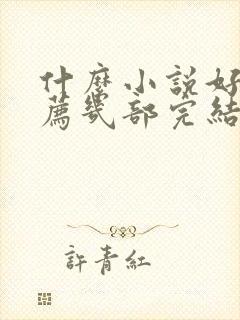 什麼小說好
薦幾部完結
許青紅